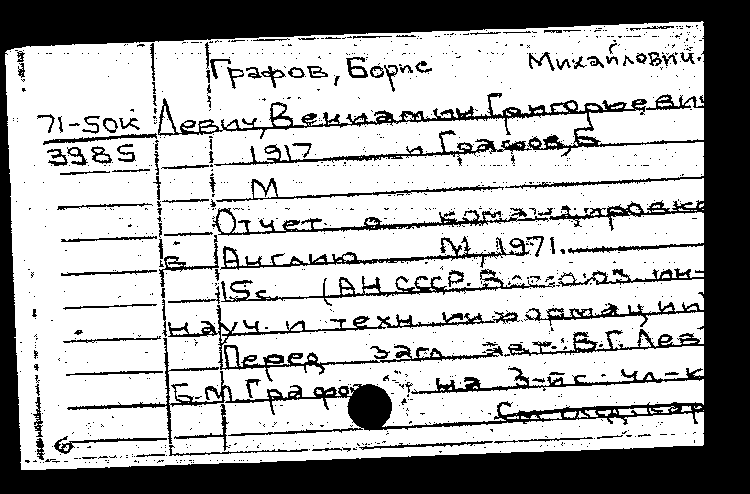 Графов, Борис Михайлович.
71-50к Левич, Вениамин Григорьевич
3985 1917 и Графов, Б
М
Отчет о командировке
в Англию М, 1971.
15с. (АН СССР. Всесоюз. ин-
науч. и техн. информации)
Перед загл. авт.: В.Г. Лев
Б.М Графов на 3-й с. чл-к
См след. кар
6